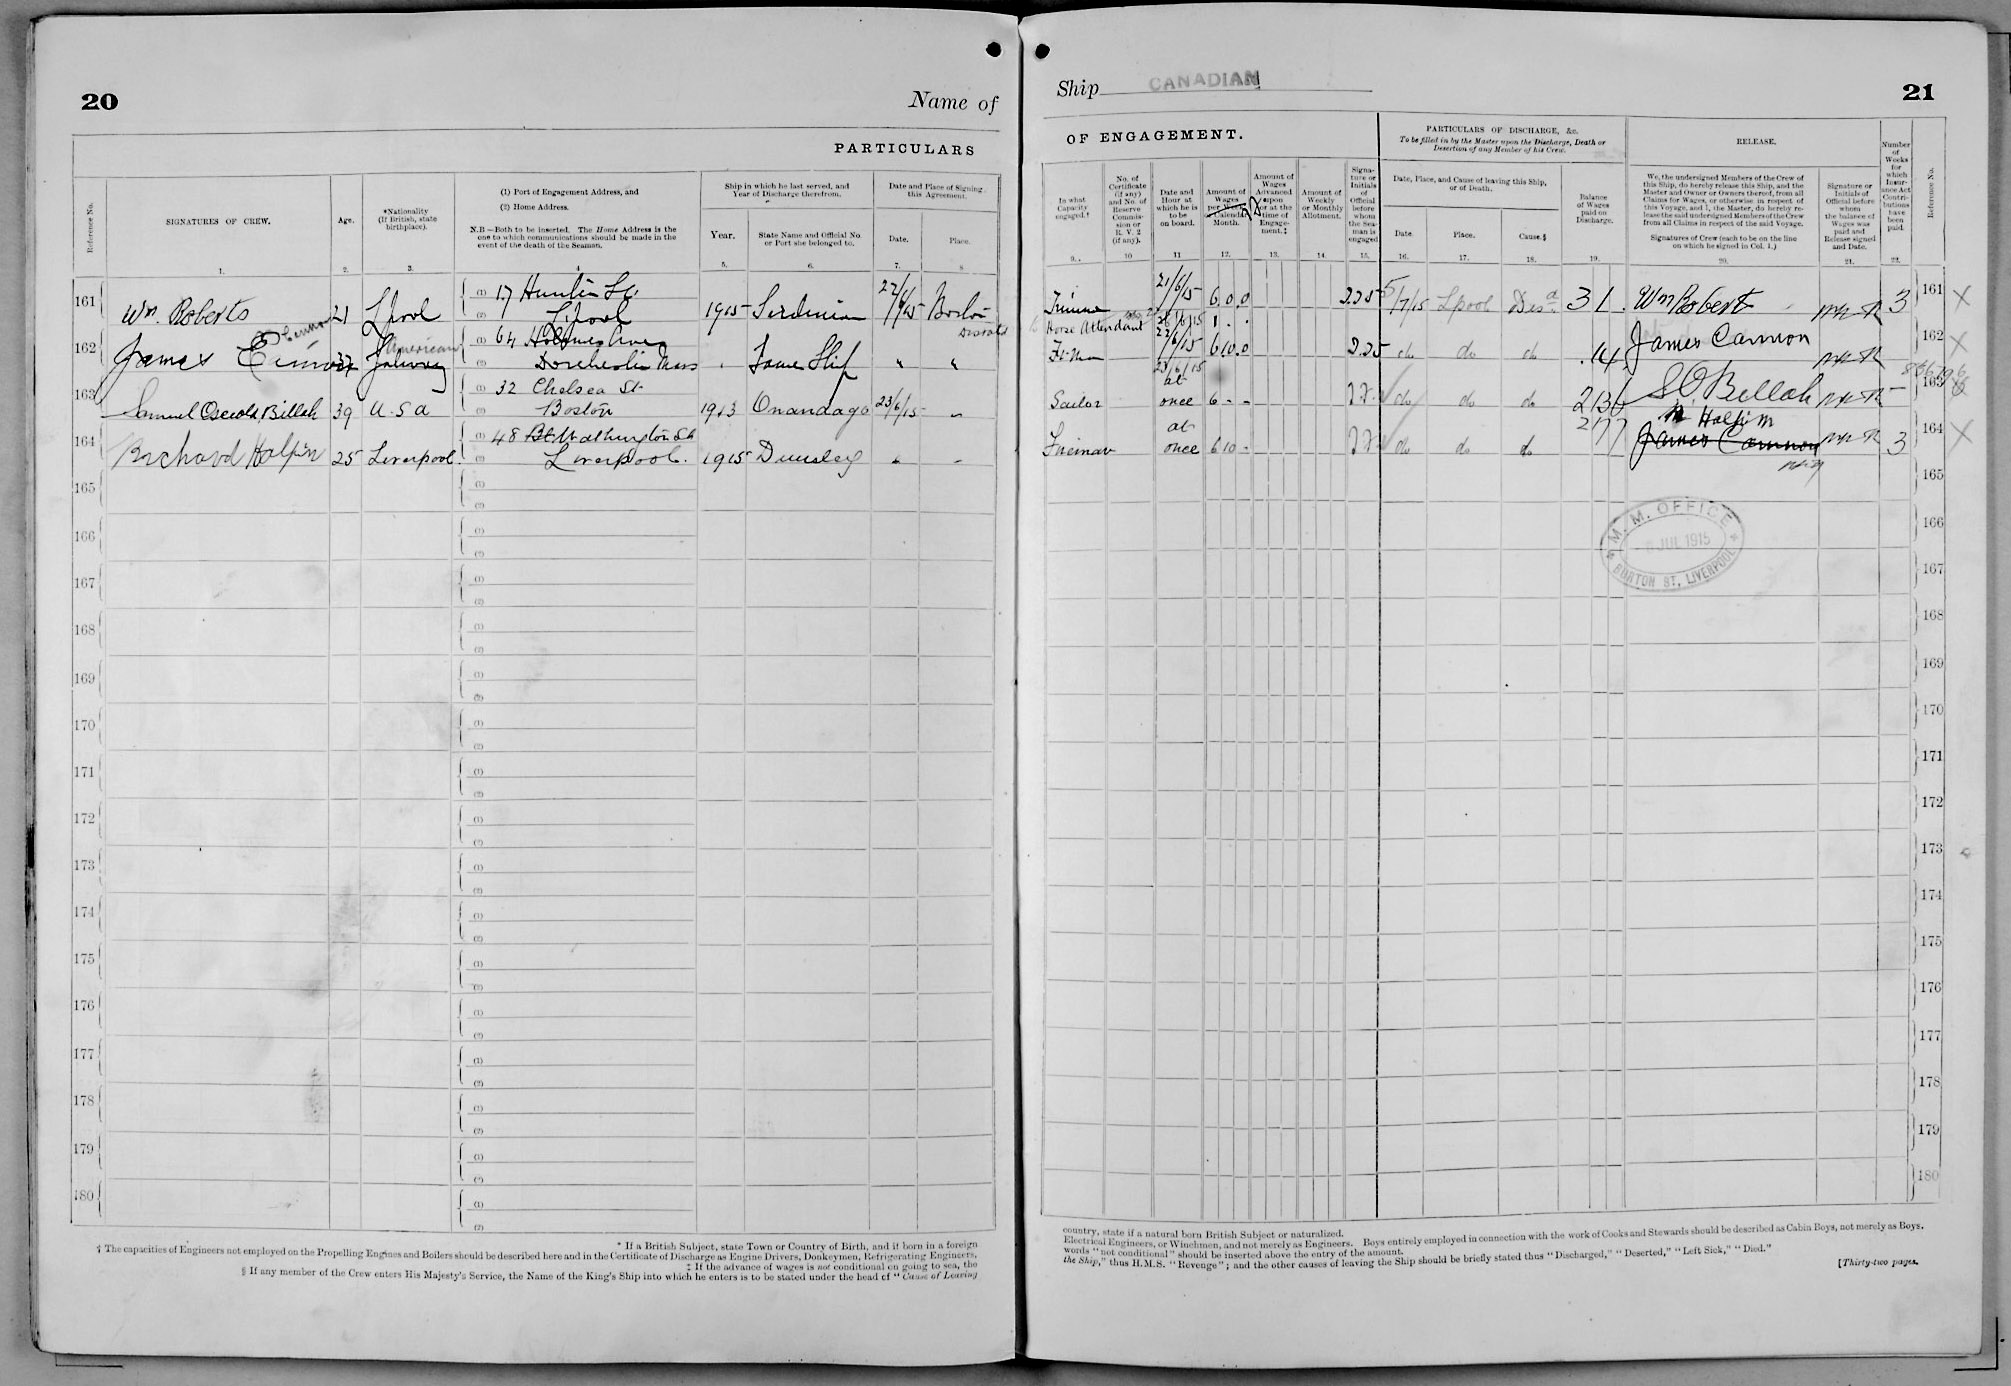 20
Name of
PARTICULARS
Reference No.
SIGNATURES OF CREW.
Age.
*Nationality
(If British, state
birthplace).
(1) Port of Engagement Address, and
(2) Home Address.
N.B—Both to be inserted. The Home Address is the
one to which communications should be made in the
event of the death of the Seaman.
Ship in which he last served, and
Year of Discharge therefrom.
Year.
State Name and Official No.
or Port she belonged to.
Date and Place of Signing
this Agreement.
Date.
Place.
1. 2. 3. 4 5. 6. 7. 8
161 Wm. Roberts 21 Lpool (1) 17 Hunter St
(2) Lpool 1915 Sardinian 22/6/15 Boston
162 James Cannon 37 Galway American (1) 64
(2) Dorchester Mass " Same Ship " "
163 Samuel Oswold Billah 39 U.S.A (1) 32 Chelsea St
(2) Boston 1913 Onandago 23/6/15 "
164 Richard Halpin 25 Liverpool. (1) 48
(2) Liverpool. 1915 " "
165 (1)
(2)
166 (1)
(2)
167 (1)
(2)
168 (1)
(2)
169 (1)
(2)
170 (1)
(2)
171 (1)
(2)
172 (1)
(2)
173 (1)
(2)
174 (1)
(2)
175 (1)
(2)
176 (1)
(2)
177 (1)
(2)
178 (1)
(2)
179 (1)
(2)
180 (1)
(2)
* If a British Subject, state Town or Country of Birth, and if born in a foreign
† The capacities of Engineers not employed on the Propelling Engines and Boilers should be described here and in the Certificate of Discharge as Engine Drivers, Donkeymen, Refrigerating Engineers,
‡ If the advance of wages is not conditional on going to sea, the
§ If any member of the Crew enters His Majesty's Service, the Name of the King's Ship into which he enters is to be stated under the head of "Cause of Leaving
Ship CANADIAN
21
OF ENGAGEMENT.
PARTICULARS OF DISCHARGE, &c.
To be filled in by the Master upon the Discharge, Death or
Desertion of any Member of his Crew.
RELEASE.
In what
Capacity
engaged.†
No. of
Certificate
(if any)
and No. of
Reserve
Commis-
sion or
R. V. 2
(if any).
Date and
Hour at
which he is
to be
on board.
Amount of
Wages
per Week
or Calendar
Month.
Amount of
Wages
Advanced
upon
or at the
time of
Engage-
ment.‡
Amount of
Weekly
or Monthly
Allotment.
Signa-
ture or
Initials
of
Official
before
whom
the Sea-
man is
engaged
Date, Place, and Cause of leaving this Ship,
or of Death.
Date.
Place.
Cause.§
Balance
of Wages
paid on
Discharge.
We, the undersigned Members of the Crew of
this Ship, do hereby release this Ship, and the
Master and Owner or Owners thereof, from all
Claims for Wages, or otherwise in respect of
this Voyage, and I, the Master, do hereby re-
lease the said undersigned Members of the Crew
from all Claims in respect of the said Voyage.
Signatures of Crew (each to be on the line
on which he signed in Col. 1.)
Signature or
Initials of
Official before
whom
the balance of
Wages was
paid and
Release signed
and Date.
Number
of
Weeks
for
which
Insur-
ance Act
Contri-
butions
have
been
paid.
Reference No.
9. 10 11 12. 13. 14. 15. 16. 17. 18. 19. 20. 21. 22.
Trimmer 21/6/15 6.0.0 2.25 5/7/15 Lpool Desd 31. Wm Roberts 3 161 X
Horse Attendant 1 . .
22/6/15 6.10.0 2.25 do do do .14 James Cannon 162 X
23/6/15
Sailor at once 6 - - do do do 2 13 6 S.O. Billah 163
Fireman at once 6 10 - do do do 2 17 R Halpin
James Cannon 3 164 X
165
166
M. M. OFFICE
JUL 1915
BURTON ST, LIVERPOOL
167
168
169
170
171
172
173
174
175
176
177
178
179
180
country, state if a natural born British Subject or naturalized.
Electrical Engineers, or Winchmen, and not merely as Engineers. Boys entirely employed in connection with the work of Cooks and Stewards should be described as Cabin Boys, not merely as Boys.
words "not conditional" should be inserted above the entry of the amount.
the Ship," thus H.M.S. "Revenge"; and the other causes of leaving the Ship should be briefly stated thus "Discharged," "Deserted," "Left Sick," "Died."
[Thirty-two pages.